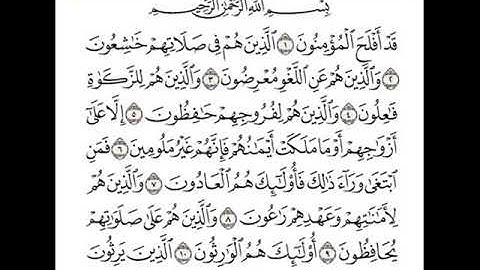 بِسْمِ ٱللَّهِ ٱلرَّحْمَٰنِ ٱلرَّحِيمِ
قَدْ أَفْلَحَ ٱلْمُؤْمِنُونَ ١ ٱلَّذِينَ هُمْ فِى صَلَاتِهِمْ خَٰشِعُونَ
٢ وَٱلَّذِينَ هُمْ عَنِ ٱللَّغْوِ مُعْرِضُونَ ٣ وَٱلَّذِينَ هُمْ لِلزَّكَوٰةِ
فَٰعِلُونَ ٤ وَٱلَّذِينَ هُمْ لِفُرُوجِهِمْ حَٰفِظُونَ ٥ إِلَّا عَلَىٰٓ
أَزْوَٰجِهِمْ أَوْ مَا مَلَكَتْ أَيْمَٰنُهُمْ فَإِنَّهُمْ غَيْرُ مَلُومِينَ ٦ فَمَنِ
ٱبْتَغَىٰ وَرَآءَ ذَٰلِكَ فَأُو۟لَٰٓئِكَ هُمُ ٱلْعَادُونَ ٧ وَٱلَّذِينَ هُمْ
لِأَمَٰنَٰتِهِمْ وَعَهْدِهِمْ رَٰعُونَ ٨ وَٱلَّذِينَ هُمْ عَلَىٰ صَلَوَٰتِهِمْ
يُحَافِظُونَ ٩ أُو۟لَٰٓئِكَ هُمُ ٱلْوَٰرِثُونَ ١٠ ٱلَّذِينَ يَرِثُونَ